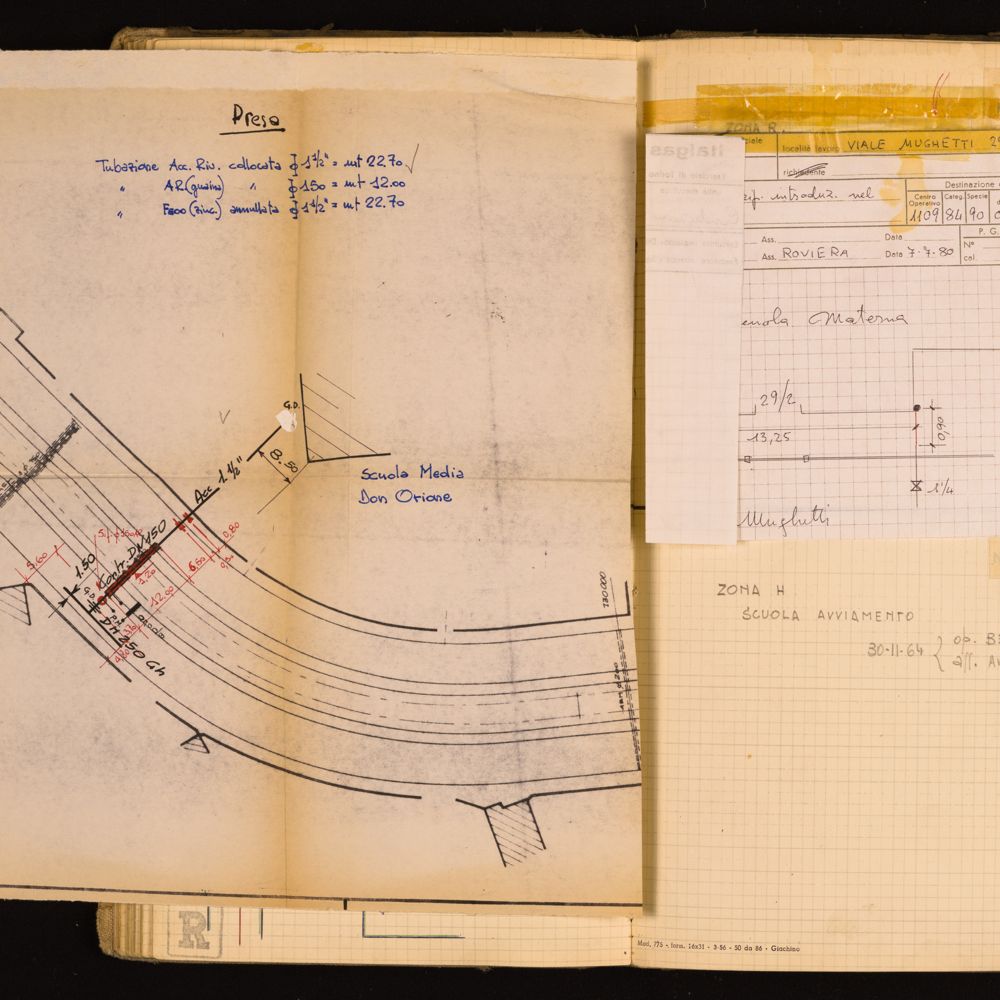 Presa
Tubazione Acc. Riv. collocata ϕ 1½" = mt 22.70
" AR (guaina) " ϕ 150 = mt 12.00
" Fe00 (zinc.) annullata ϕ 1½" = mt 22.70
G.D.
8.50
Acc 1½"
Scuola Media
Don Orione
Contr. DN 150
1.50
5.60
1.20
12.00
6.50
0.80
G.D.
anodo
DN 250 Gh
130000
R
ZONA R.
italgas
località lavoro VIALE MUGHETTI
richiedente
introduz. nel
Destinazione
Centro Operativo Categ. Specie
1109 84 90
Ass. Data
Ass. ROVIERA Data 7.7.80
P. G.
N°
cal.
Materna
29/2
13,25
0,90
1"/4
Mughetti
ZONA H
SCUOLA AVVIAMENTO
30-11-64 { op.
aff.
Mod. 775 - form. 16x31 - 3-56 - 50 da 86 - Giachino